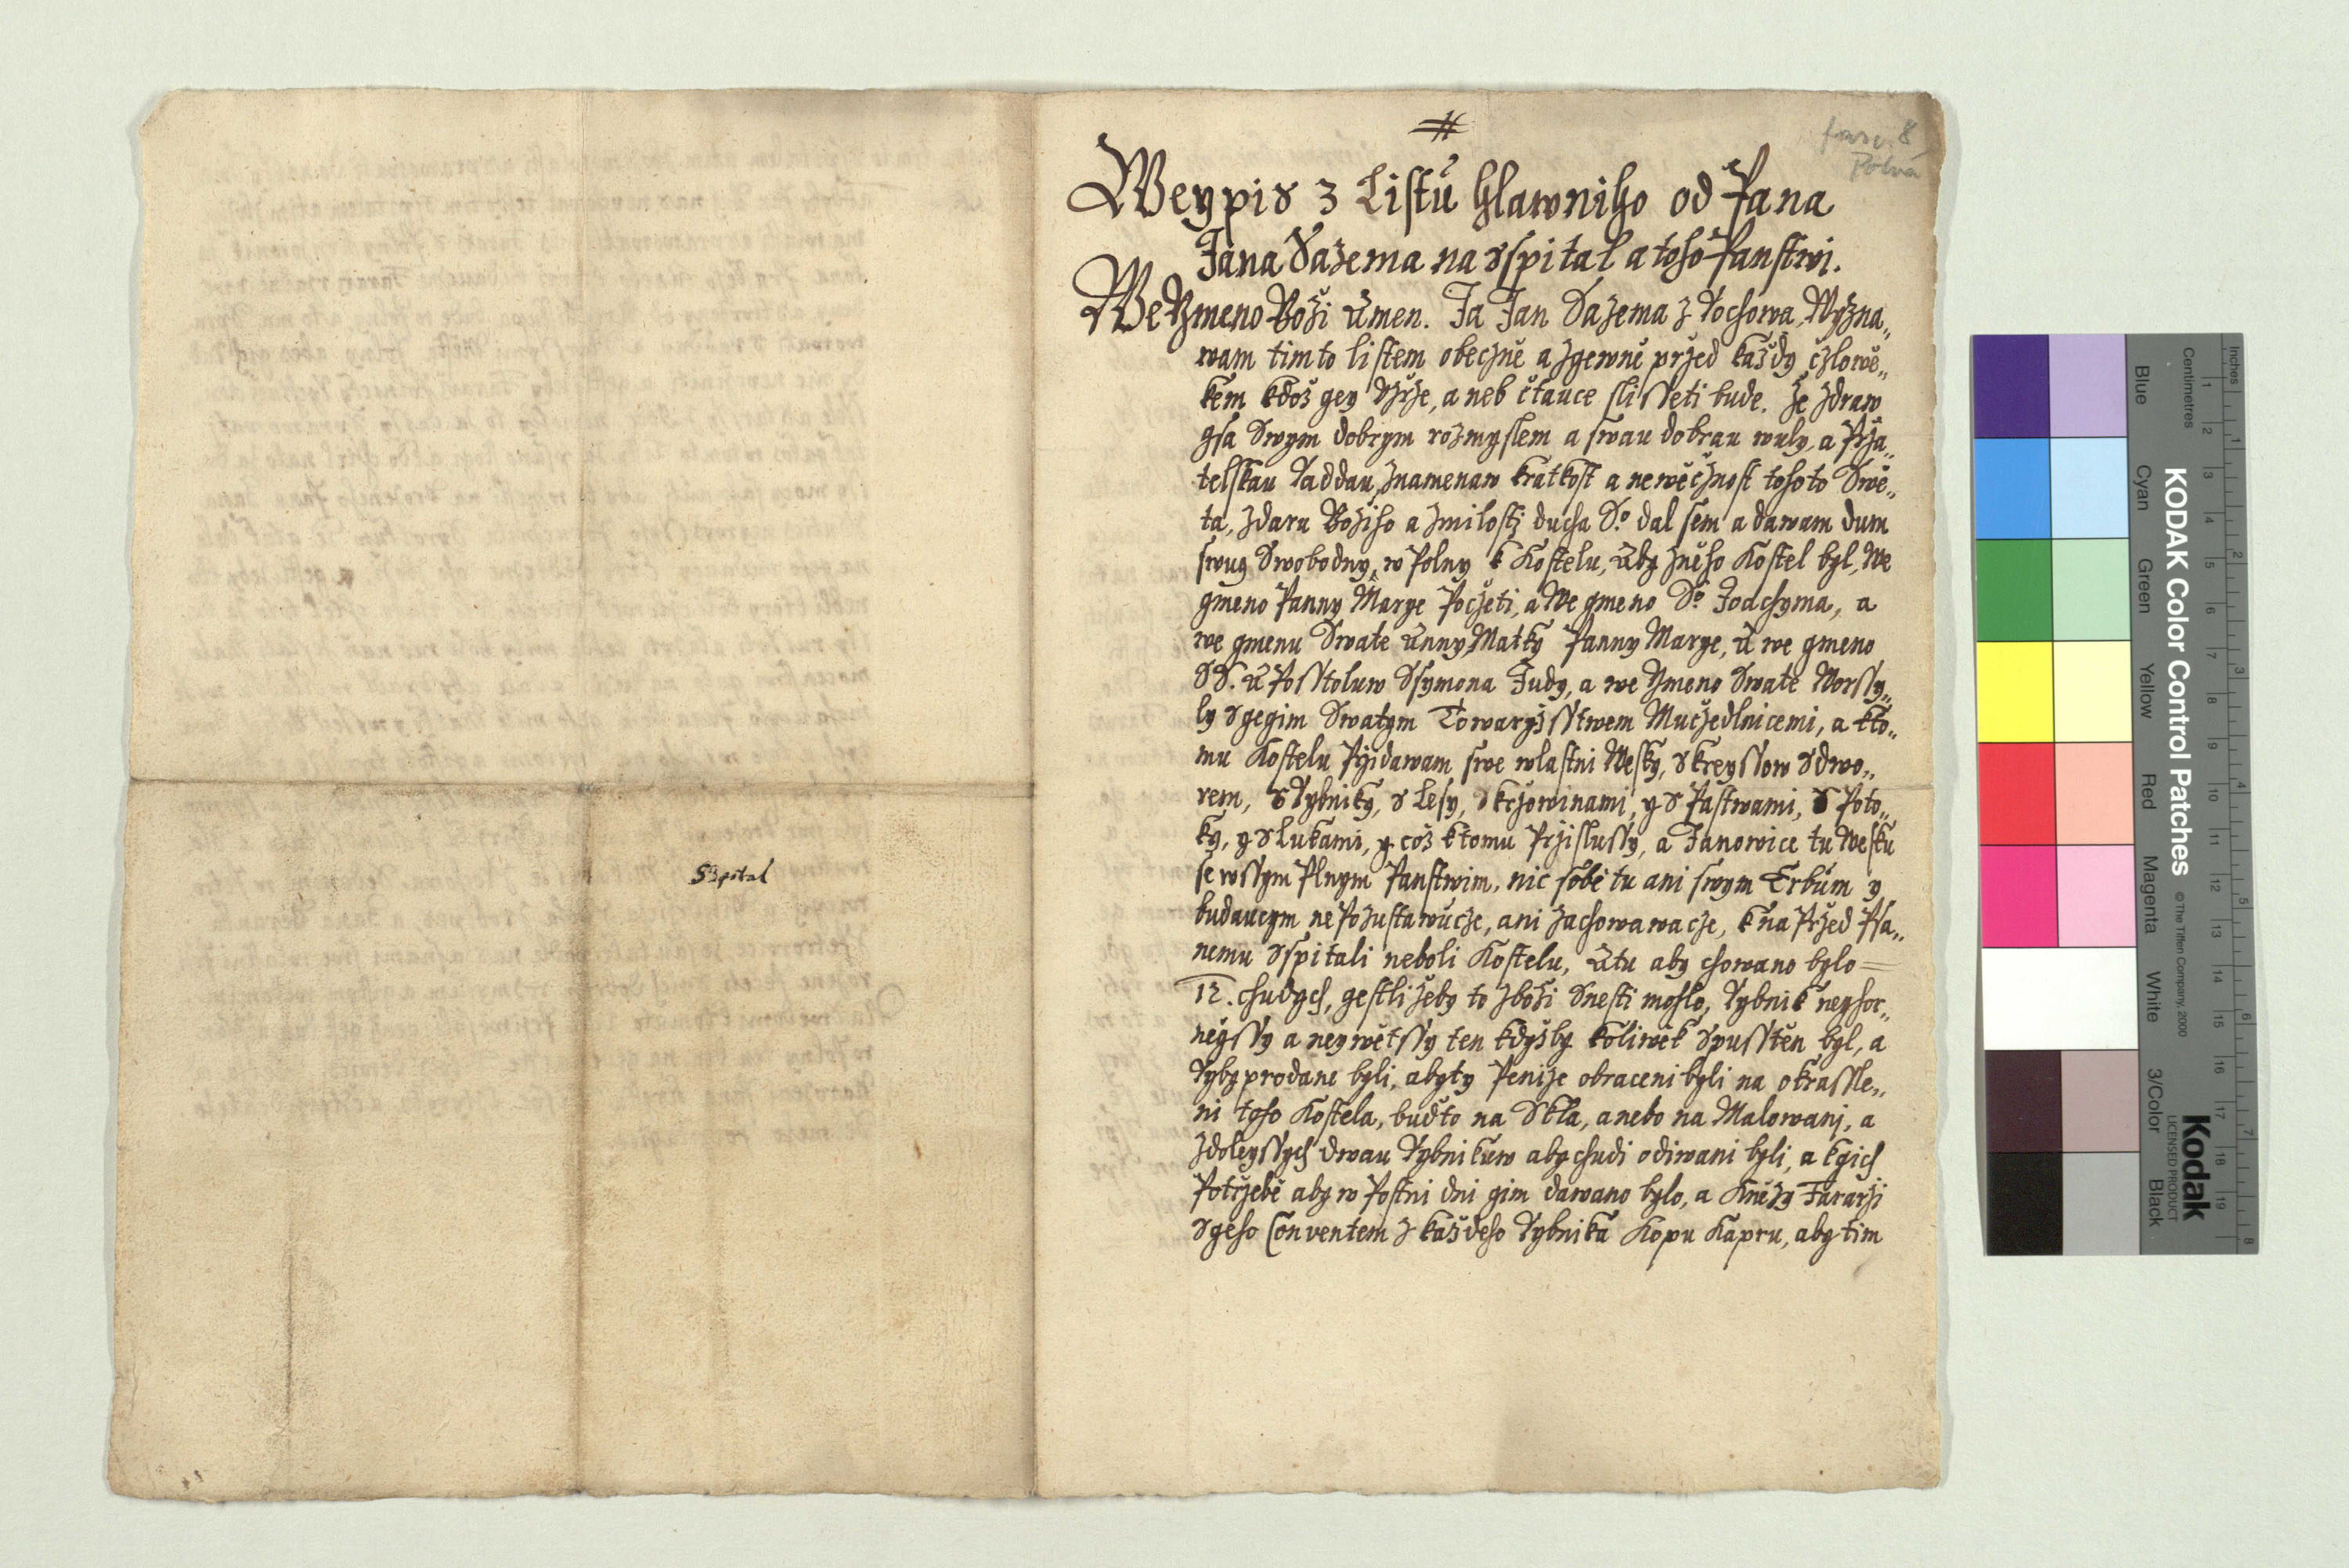 Sspital
fasc. 8
Polná
Weypis z Listu hlawniho od Pana
Jana Sazema na sspital a toho Panstwi.
We Ymeno Boži Amen. Ja Jan Sazema z Rochowa, Wyzna„
wam timto listem obeczně a zgewně przed každy czlowě„
kem kdož gey Vzrže, a neb čtauce slisseti bude. Že zdraw
gsa Swym dobrym rozmyslem a swau dobrau wuly, a Prza„
telskau Raddau, znamenaw kratkost a newěčznost tohoto Swě„
ta, zdaru Božiho a zmilosti ducha S.o dal sem a dawam dum
swug Swobodny, w Polny k Kostelu, Aby zněho Kostel byl, We
gmeno Panny Marye Poczeti, a We gmeno S.o Joachyma, a
we gmenu Swate Anny, Matky Panny Marye, A we gmeno
SS. A Posstoluw Ssymona Judy, a we Ymeno Swate Worssy„
ly s gegim Swatym Towaryšstwem Muczedlnicemi, a kto„
mu Kostelu Przidawam swe wlastni Wesky, Skreyssow Sdwo„
rem, s Rybniky, s Lesy, Skrzowinami, y s Pastwami, s Poto„
ky, y s Lukami, y což ktomu Przislussy, a Janowice tu Wesku
se wssym Plnym Panstwim, nic sobě tu ani swym Erbum y
budaucym ne Pozustawucze, ani zachowawacze, k na Przed Psa„
nemu Sspitali neboli Kostelu, Atu aby chowano bylo
12. chudych, gestli žeby to zboži Snesti mohlo, Rybnik neyhor„
něyssy a neywětssy ten kdyžby koliwěk Spusstěn byl, a
Ryby prodane byli, aby ty Penize obraceni byli na okrassle„
ni toho Kostela, buďto na Skla, anebo na Malowani, a
zdoleyssych dwau Rybnikuw aby chudi odiwani byli, a kgich
Potrzebě aby w Postni dni gim dawano bylo, a Kněžy Fararži
s geho Conventem z každeho Rybnika Kopu Kapru, aby tim
KODAK Color Control Patches
© The Tiffen Company, 2000
Kodak
LICENSED PRODUCT
Inches
Centimetres
Blue
Cyan
Green
Yellow
Red
Magenta
White
3/Color
Black